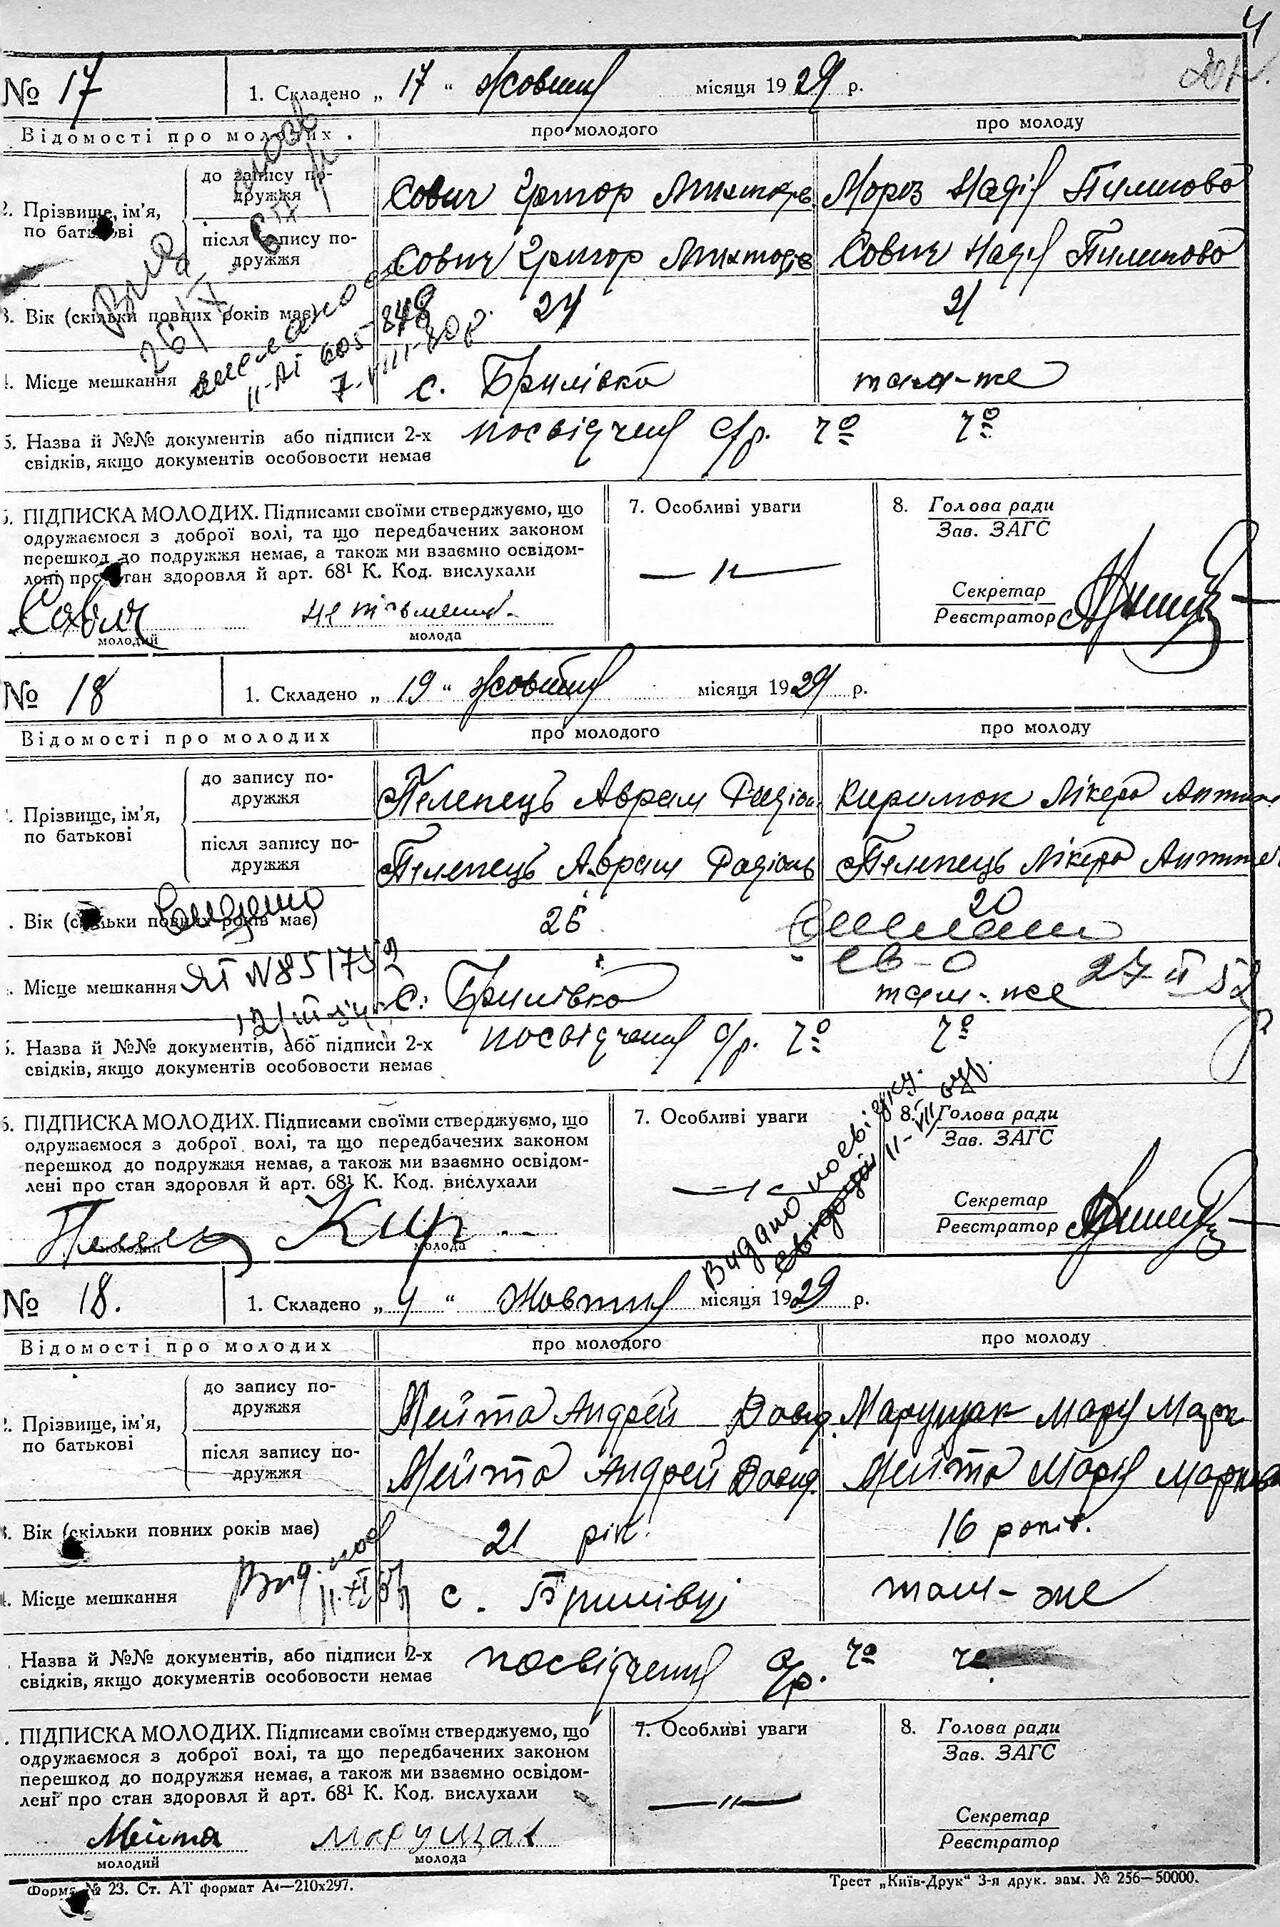 4
201
№ 17
1. Складено „ 17 “ Жовтня місяця 1929 р.
Відомості про молодих.
про молодого
про молоду
2. Прізвище, ім'я, по батькові
до запису подружжя
Мороз Надія Пилипова
після запису подружжя
Надія Пилипова
3. Вік (скільки повних років має)
24
21
26/X
7-VIII-
4. Місце мешкання
с. Брилівка
там-же
5. Назва й №№ документів або підписи 2-х
свідків, якщо документів особовости немає
посвідчення с/р. ч⁰ ч⁰
6. ПІДПИСКА МОЛОДИХ. Підписами своїми стверджуємо, що
одружаємося з доброї волі, та що передбачених законом
перешкод до подружжя немає, а також ми взаємно освідом-
лені про стан здоровля й арт. 68¹ К. Код. вислухали
7. Особливі уваги
— „ —
8. Голова ради
Зав. ЗАГС
Секретар
Реєстратор
неписьменна
молодий
молода
№ 18
1. Складено „ 19 “ Жовтня місяця 1929 р.
Відомості про молодих
про молодого
про молоду
2. Прізвище, ім'я,
по батькові
до запису по-
дружжя
Пелепець Аврам
після запису по-
дружжя
Пелепець Аврам
Пелепець Лікера
3. Вік (скільки повних років має)
26
20
св-о
27 II 52
4. Місце мешкання
ЯТ N 851752
с. Брилівка
там-же
5. Назва й №№ документів, або підписи 2-х
свідків, якщо документів особовости немає
посвідчення с/р. ч⁰ ч⁰
6. ПІДПИСКА МОЛОДИХ. Підписами своїми стверджуємо, що
одружаємося з доброї волі, та що передбачених законом
перешкод до подружжя немає, а також ми взаємно освідом-
лені про стан здоровля й арт. 68¹ К. Код. вислухали
7. Особливі уваги
— „ —
Видано посвідку
8. Голова ради
Зав. ЗАГС
Секретар
Реєстратор
Кир
молодий
молода
№ 18.
1. Складено „ 4 “ Жовтня місяця 1929 р.
Відомості про молодих
про молодого
про молоду
2. Прізвище, ім'я,
по батькові
до запису по-
дружжя
Мейта Андрей Давид. Марущак Марія Марк
після запису по-
дружжя
Мейта Андрей Давид. Мейта Марія Маркова
3. Вік (скільки повних років має)
21 рік.
16 років.
4. Місце мешкання
Вид. пос
с. Брилівці
там-же
5. Назва й №№ документів, або підписи 2-х
свідків, якщо документів особовости немає
посвідчення с/р. ч⁰
6. ПІДПИСКА МОЛОДИХ. Підписами своїми стверджуємо, що
одружаємося з доброї волі, та що передбачених законом
перешкод до подружжя немає, а також ми взаємно освідом-
лені про стан здоровля й арт. 68¹ К. Код. вислухали
7. Особливі уваги
— „ —
8. Голова ради
Зав. ЗАГС
Секретар
Реєстратор
Мейта
Марущак
молодий
молода
Форма № 23. Ст. АТ формат А4—210х297.
Трест „Київ-Друк“ 3-я друк. зам. № 256—50000.